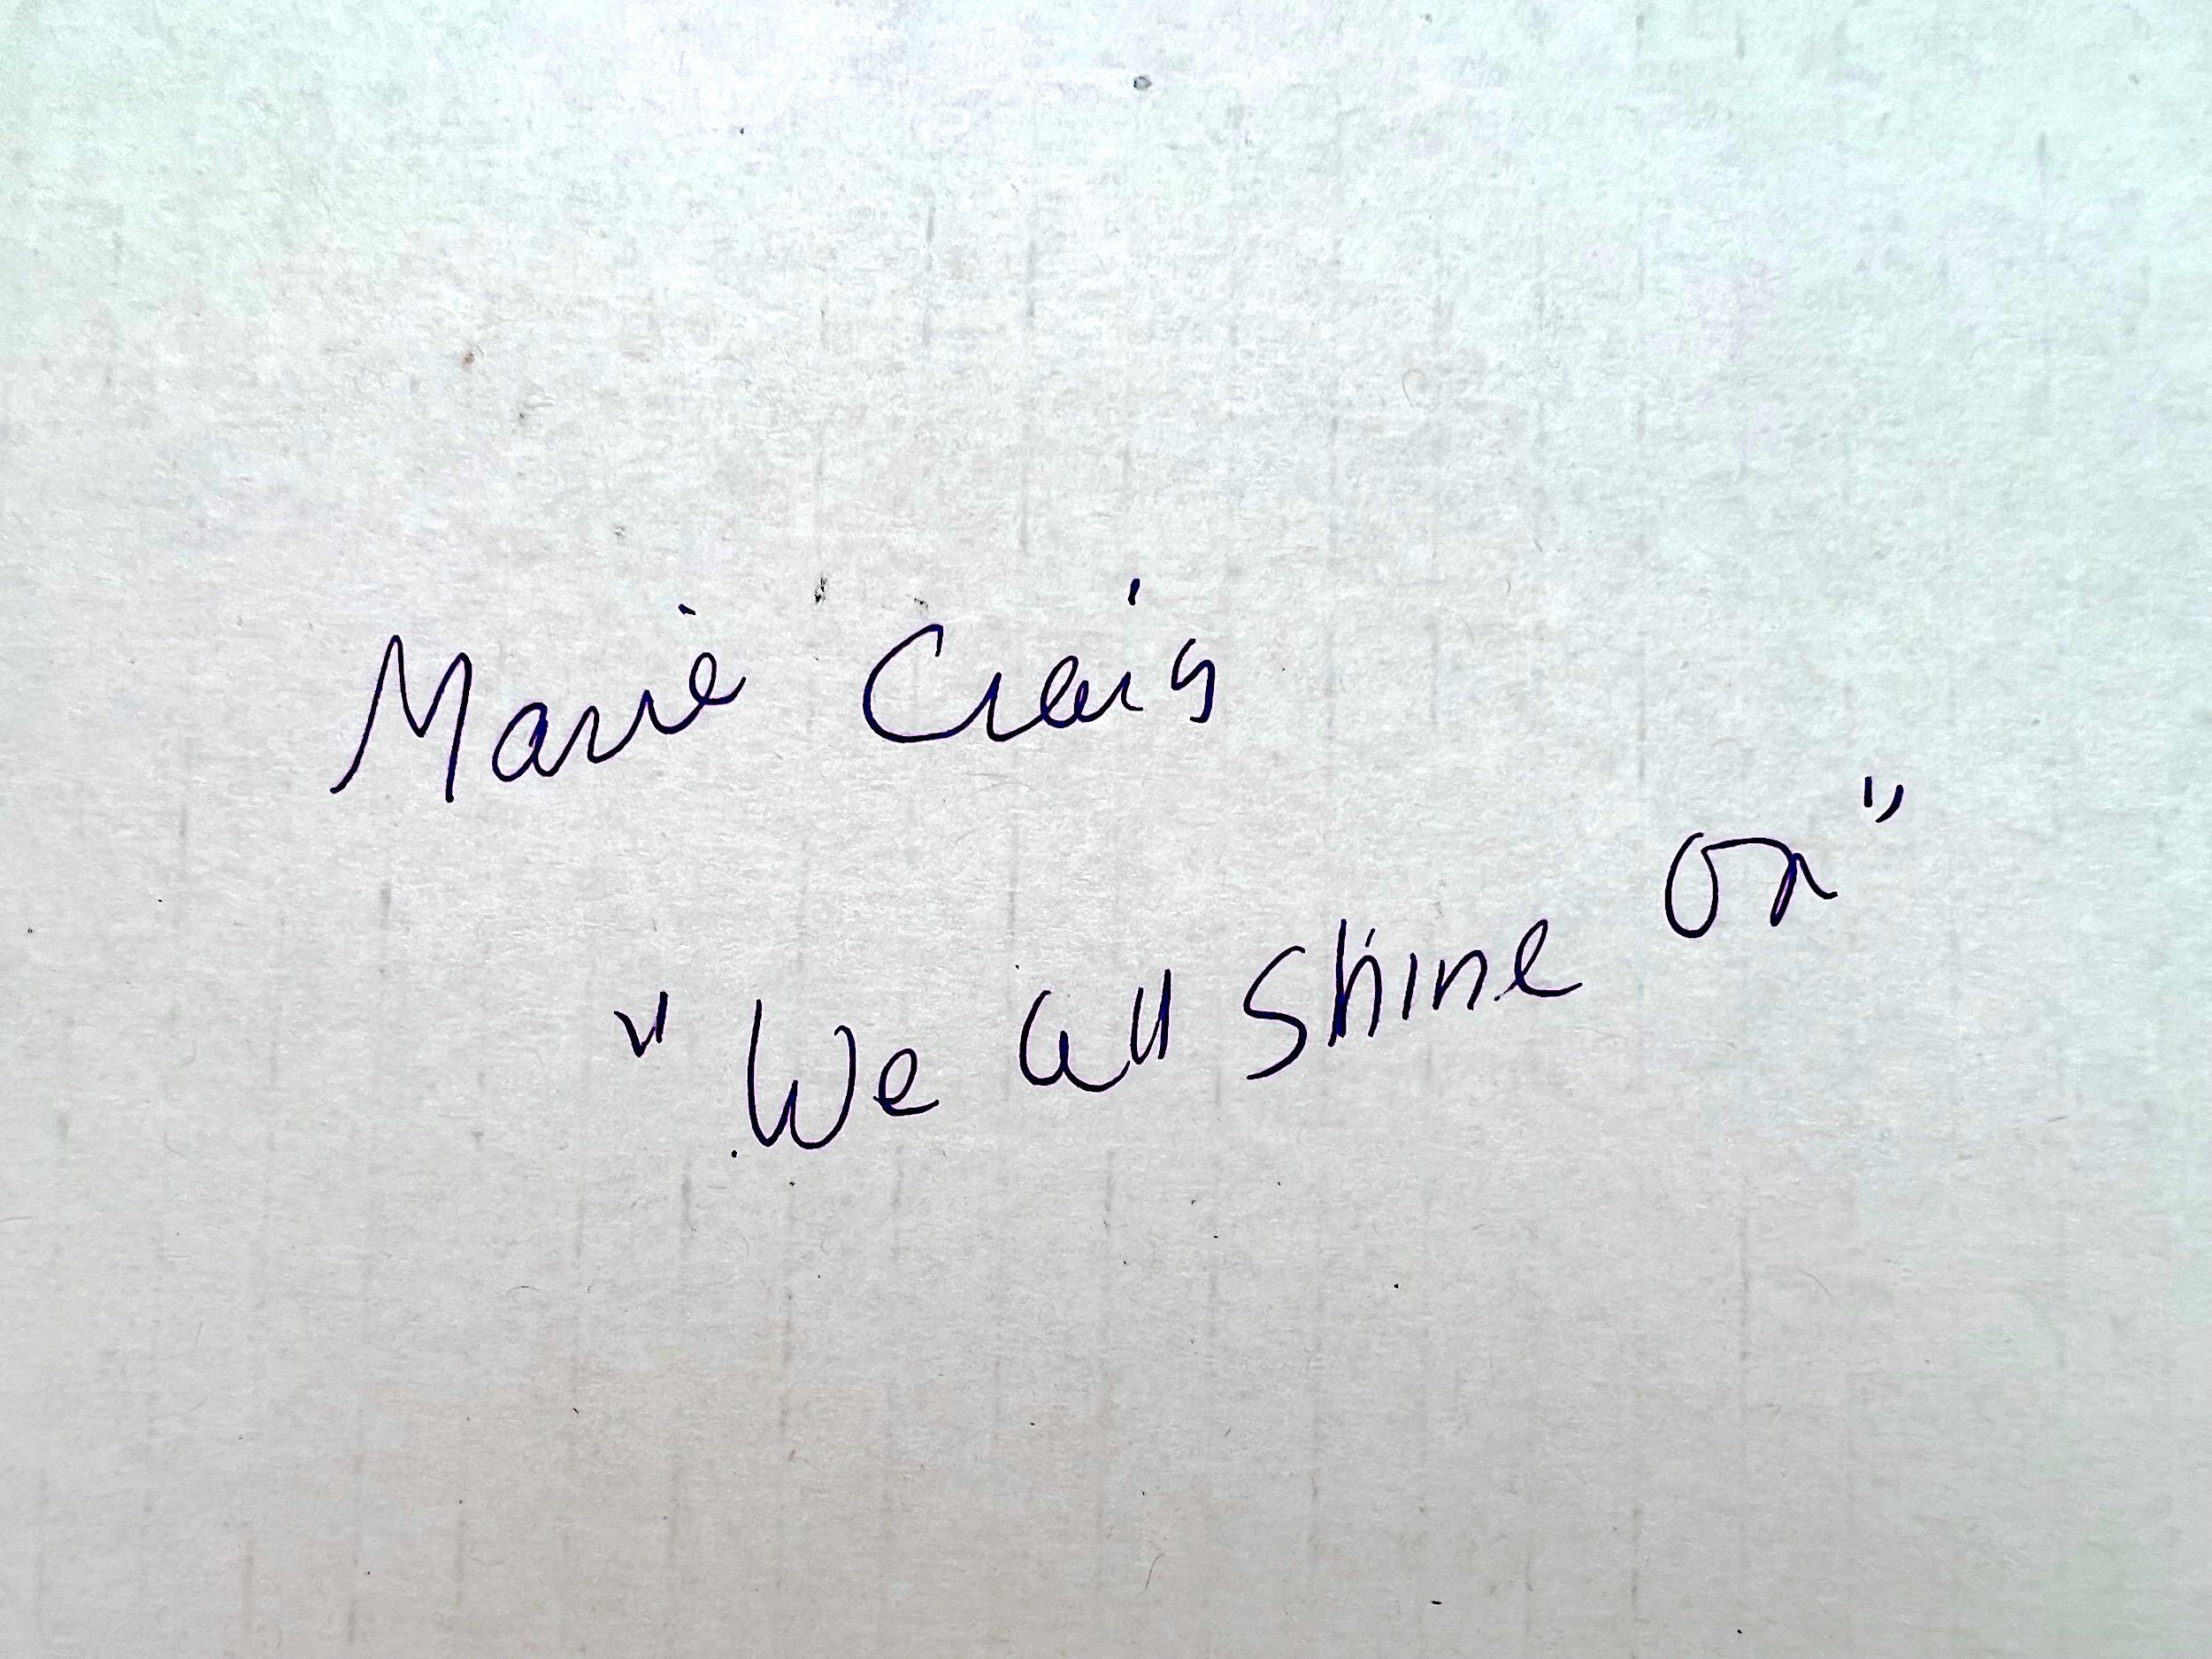 Marie Craig
"We all shine on"